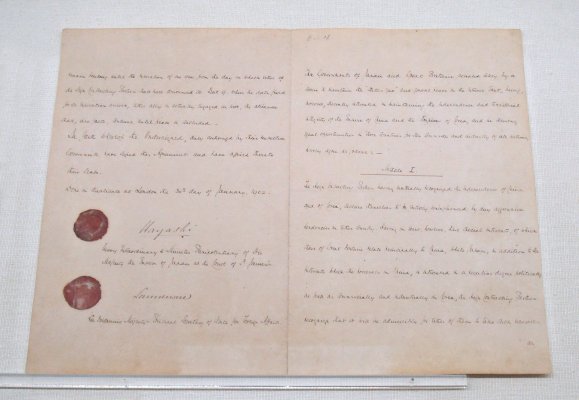 remain binding until the expiration of one year from the day on which either of
the High Contracting Parties shall have denounced it. But if, when the date fixed
for its expiration arrives, either ally is actually engaged in war, the alliance
shall, ipso facto, continue until peace is concluded.
In faith whereof the Undersigned, duly authorized by their respective
Governments, have signed this Agreement and have affixed thereto
their Seals.
Done in duplicate at London, the 30th day of January, 1902.
Hayashi
Envoy Extraordinary & Minister Plenipotentiary of His
Majesty the Emperor of Japan at the Court of St James's
Lansdowne
His Britannic Majesty's Principal Secretary of State for Foreign Affairs
The Governments of Japan and Great Britain, actuated solely by a
desire to maintain the status quo and general peace in the extreme East, being
moreover specially interested in maintaining the independence and territorial
integrity of the Empire of China and the Empire of Corea, and in securing
equal opportunities in those countries for the commerce and industry of all nations,
hereby agree as follows:—
Article I.
The High Contracting Parties, having mutually recognized the independence of China
and of Corea, declare themselves to be entirely uninfluenced by any aggressive
tendencies in either country. Having in view, however, their special interests, of which
those of Great Britain relate principally to China, while Japan, in addition to the
interests which she possesses in China, is interested in a peculiar degree politically
as well as commercially and industrially in Corea, the High Contracting Parties
recognize that it will be admissible for either of them to take such measures